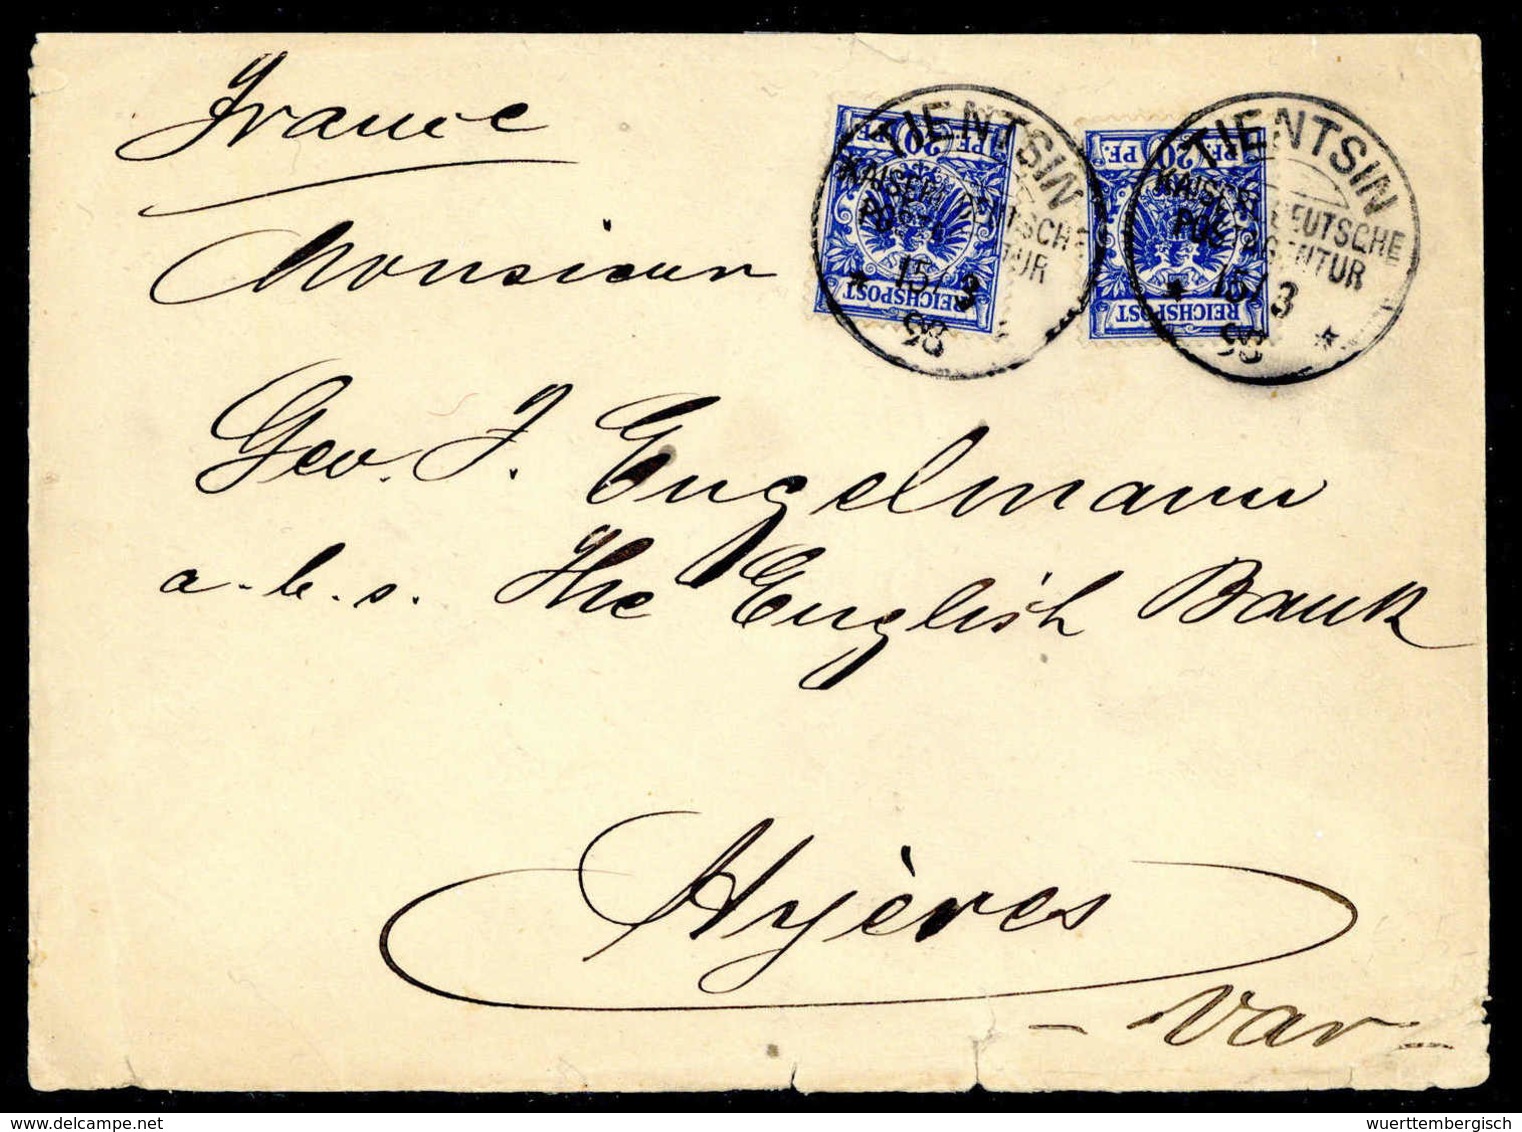 France
Monsieur
Geo. J. Engelmann
a.b.s. The English Bank
Hyères
- Var -
TIENTSIN
KAISERL. DEUTSCHE
POSTAGENTUR
15/3
98
TIENTSIN
KAISERL. DEUTSCHE
POSTAGENTUR
15/3
98
PF. 20 PF.
REICHSPOST
PF. 20 PF.
REICHSPOST
delcampe.net
wuerttembergisch